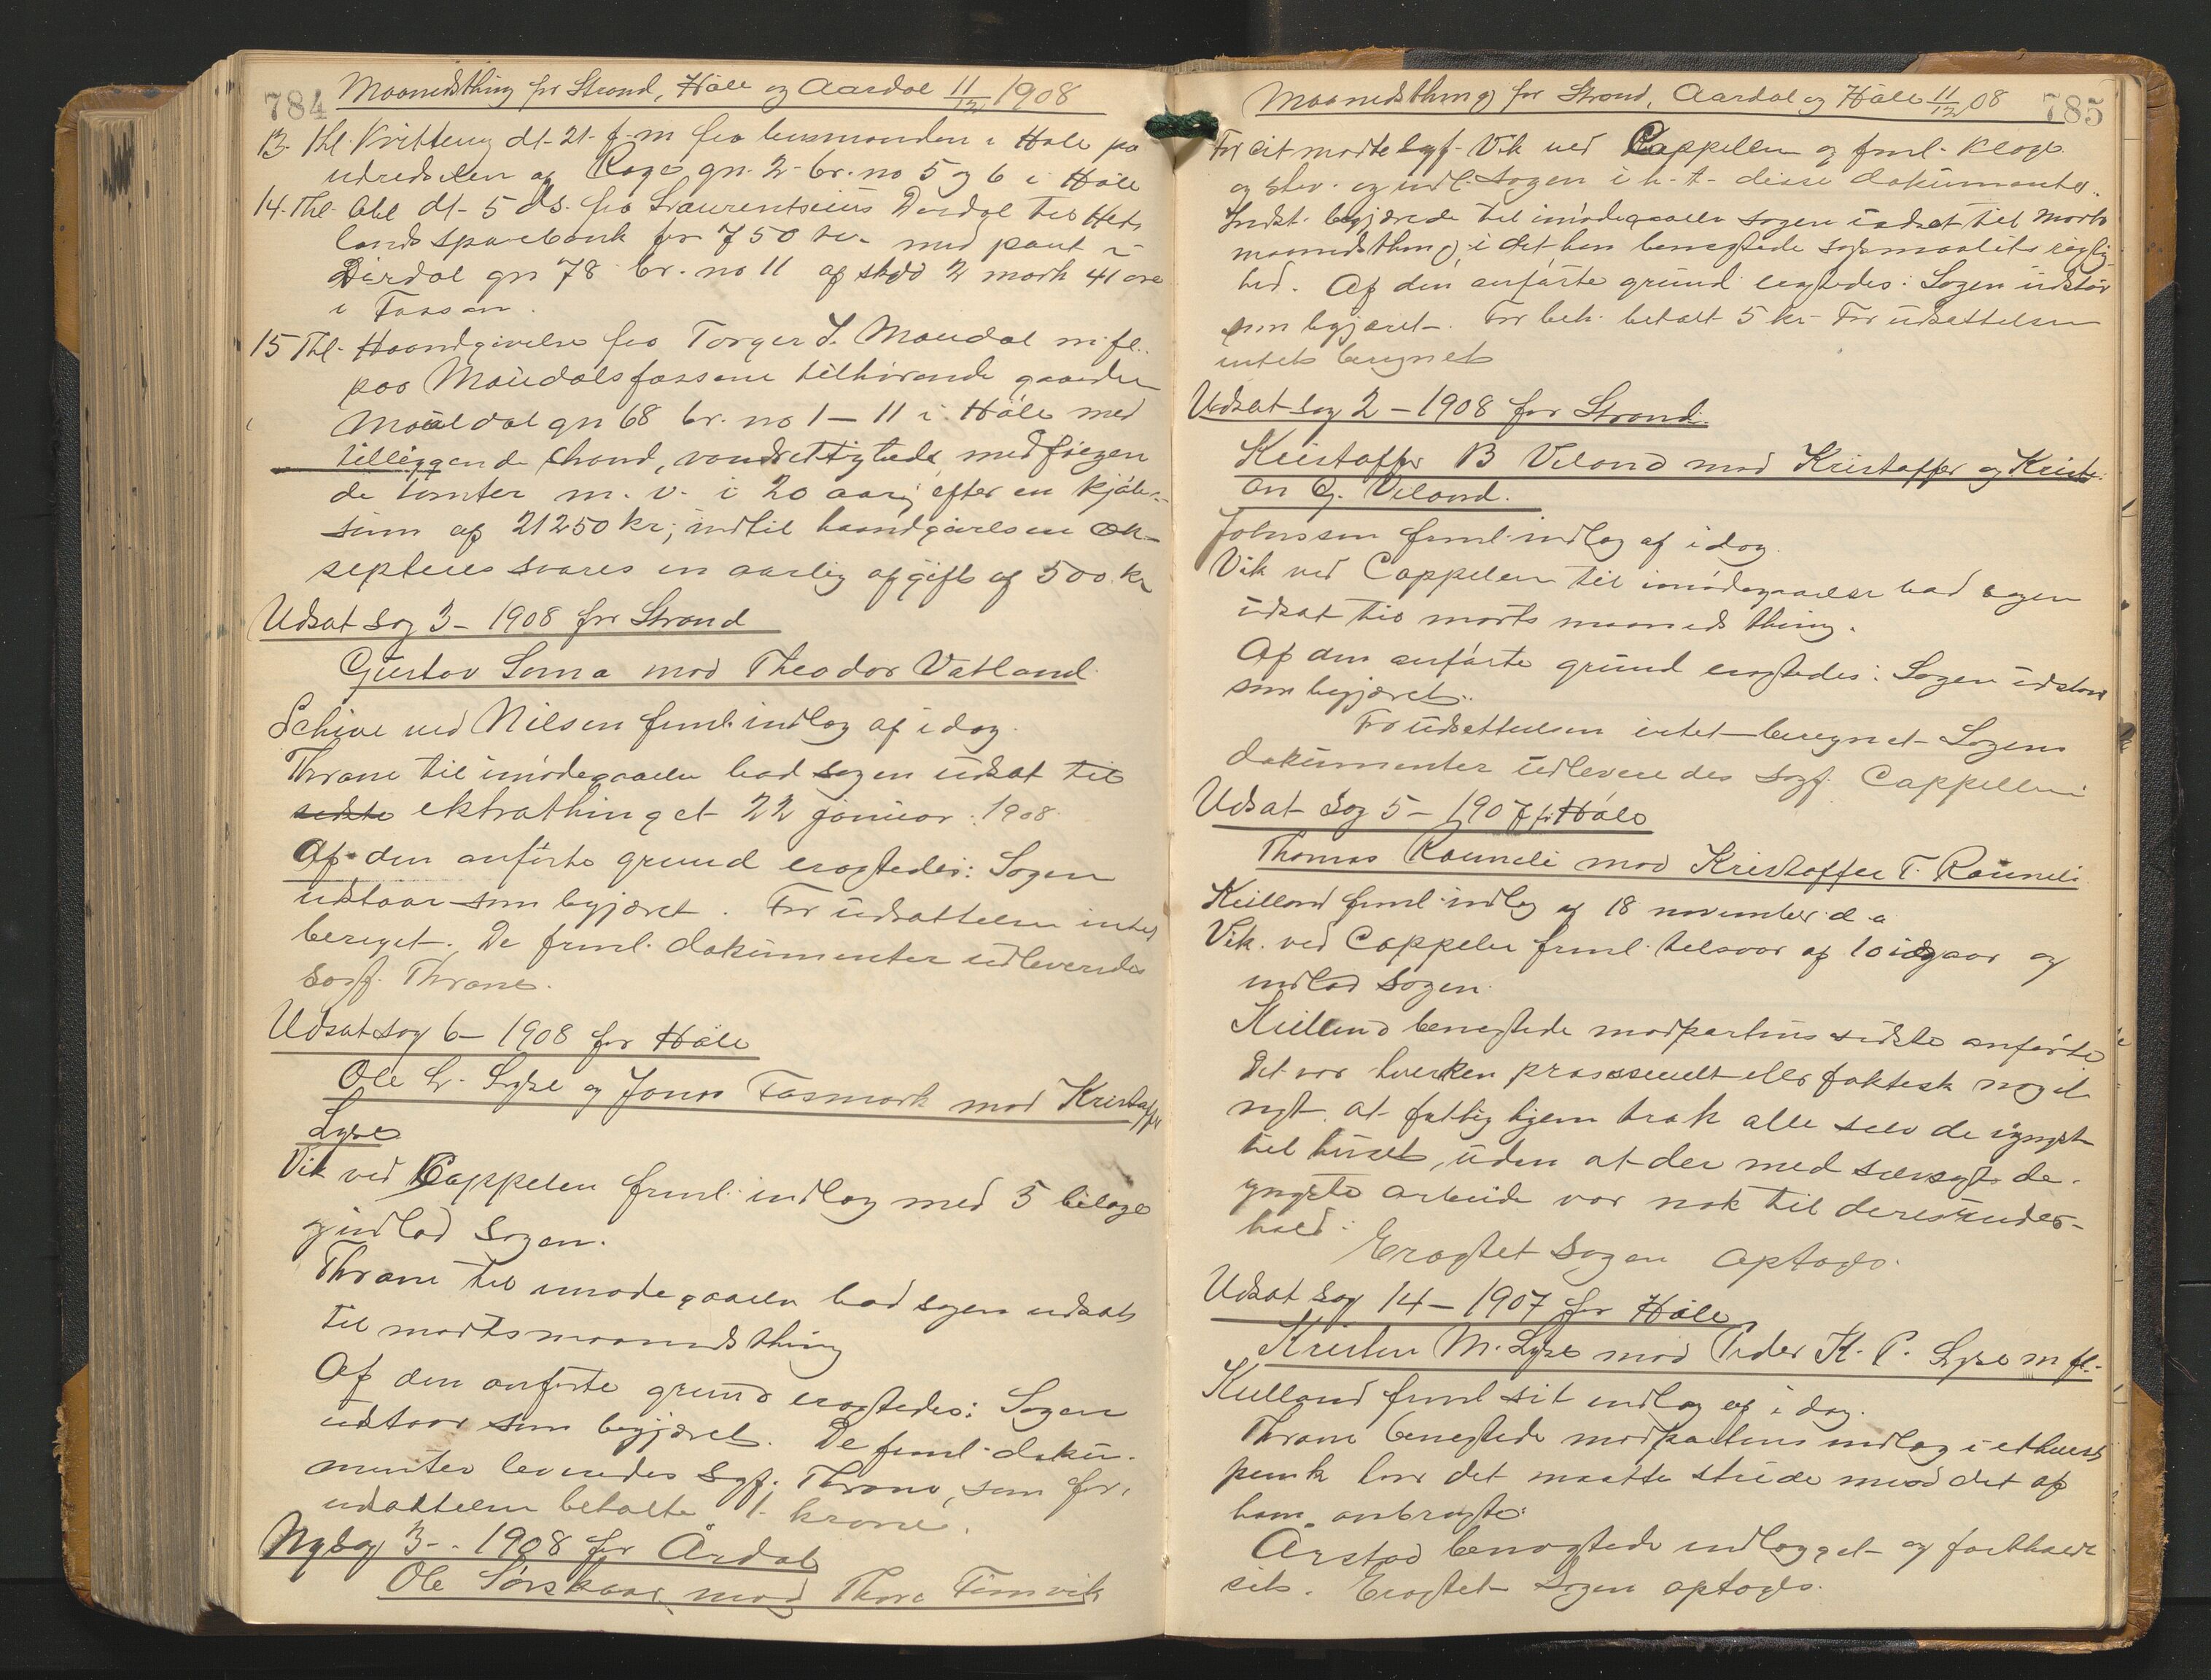 784
Maanedsthing for Strand, Höle og Aardal 11/12 1908
13. Thl. Kvittering dt. 21. f. m. fra lensmanden i Höle på
udredselen af Rage gn. 2 br. no 5 og 6 i Höle
14. Thl. Obl dt. 5 ds. fra Laurentsius Dirdal til Hets
lands sparebank for 750 kr. med pant i
Dirdal gn 78 br. no 11 af skyld 2 mark 41 øre
i Fossan.
15 Thl. Haandgivelse fra Torger T. Maudal m. fl.
paa Maudalsfossene tilhørende gaarden
Maudal gn 68 br. no 1 — 11 i Höle med
tilliggende strand, vandrettigheder, medfølgen
de tomter m. v. i 20 aar; efter en kjøbe-
sum af 21250 kr; indtil haandgivelsen ak-
septeres svares en aarlig afgift af 500 kr
Udsat sag 3 - 1908 for Strand
Gustav Soma mod Theodor Vatland.
Schive ved Nilsen freml. indlæg af idag.
Thrane til imødegaaelse bad sagen udsat til
sidste ekstrathinget 22 januar 1908.
Af den anførte grund eragtedes: Sagen
udstaar som begjæret. For udsættelsen intet
bereget. De freml. dokumenter udleveredes
sagf. Thrane.
Udsat sag 6 - 1908 for Höle
Ole L. Lyse og Jonas Fosmark mod Kristoffer
Lyse.
Vik ved Cappelen freml. indlæg med 5 bilage
og indlod sagen.
Thrane til imødegaaelse bad sagen udsat
til marts maanedsthing
Af den anførte grund eragtedes: Sagen
udstaar som begjæret. De freml. doku-
menter leveredes Sagf. Thrane, som for
udsættelsen betalte 1 krone.
Ny sag 3 - 1908 for Årdal
Ole Sørskaar mod Thore Finnvik
785
Maanedsthing for Strand, Aardal og Höle 11/12 08
For cit mødte Sagf. Vik ved Cappelen og freml. klage
og stev. og indl. sagen i h. t. disse dokumenter.
Indst. begjærede til imødegaaelse sagen udsat til marts
maanedsthing, i det han benegtede søgsmaalets rigtig-
hed. Af den anførte grund eragtedes: Sagen udstår
som begjæret. For beh. betalt 5 kr. For udsættelsen
intet beregnet
Udsat sag 2 - 1908 for Strand.
Kristoffer B Veland mod Kristoffer og Kristi-
an G. Veland.
Johnssen freml. indlæg af idag.
Vik ved Cappelen til imødegaaelse bad sagen
udsat til marts maaneds thing.
Af den anførte grund eragtedes: Sagen udstaar
som begjæret.
For udsættelsen intet beregnet. Sagens
dokumenter udleveredes Sagf. Cappelen
Udsat sag 5 - 1907 f. Höle
Thomas Rauneli mod Kristoffer T. Rauneli
Kielland freml. indlæg af 18 november d a
Vik. ved Cappelen freml. tilsvar af 10 igaar og
indlod sagen.
Kielland benegtede modpartens sidste anførte
Det var hverken prosessuelt eller faktisk noget
nyt. at fattig hjem trak alle selv de yngste
til huset, uden at der med særsagt de
yngste arbeide var nok til deres under-
hold.
Eragtet sagen optages.
Udsat sag 14 - 1907 for Höle
Kristen M. Lyse mod Peder K. P. Lyse m fl.
Kielland freml sit indlæg af i dag.
Thrane benegtede modpartens indlæg i ethvert
punkt hvor det maatte stride mod det af
ham anbragte.
Årstad benegtede indlægget og fastholdt
sit. Eragtet Sagen optages.